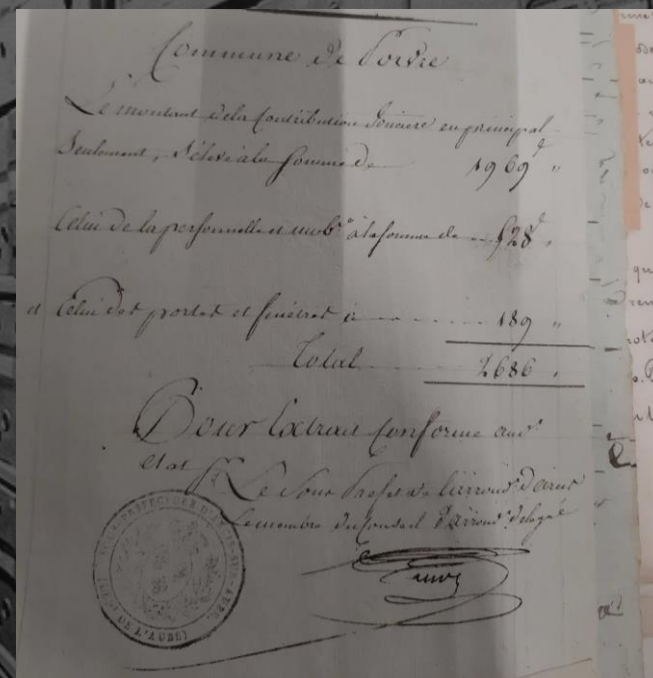 Commune de Poivre
Le montant de la Contribution foncière en principal
Seulement, s'élève à la somme de 1969 f "
Celui de la personnelle et mob.re à la somme de 528 f "
et Celui des portes et fenêtres à 189 "
Total 2686 "
Pour Extrait Conforme aux
etat
Le Sous Prefet de l'arrond.t d'arcis
Le membre du Conseil d'arrond.t delegué
DE L'AUBE